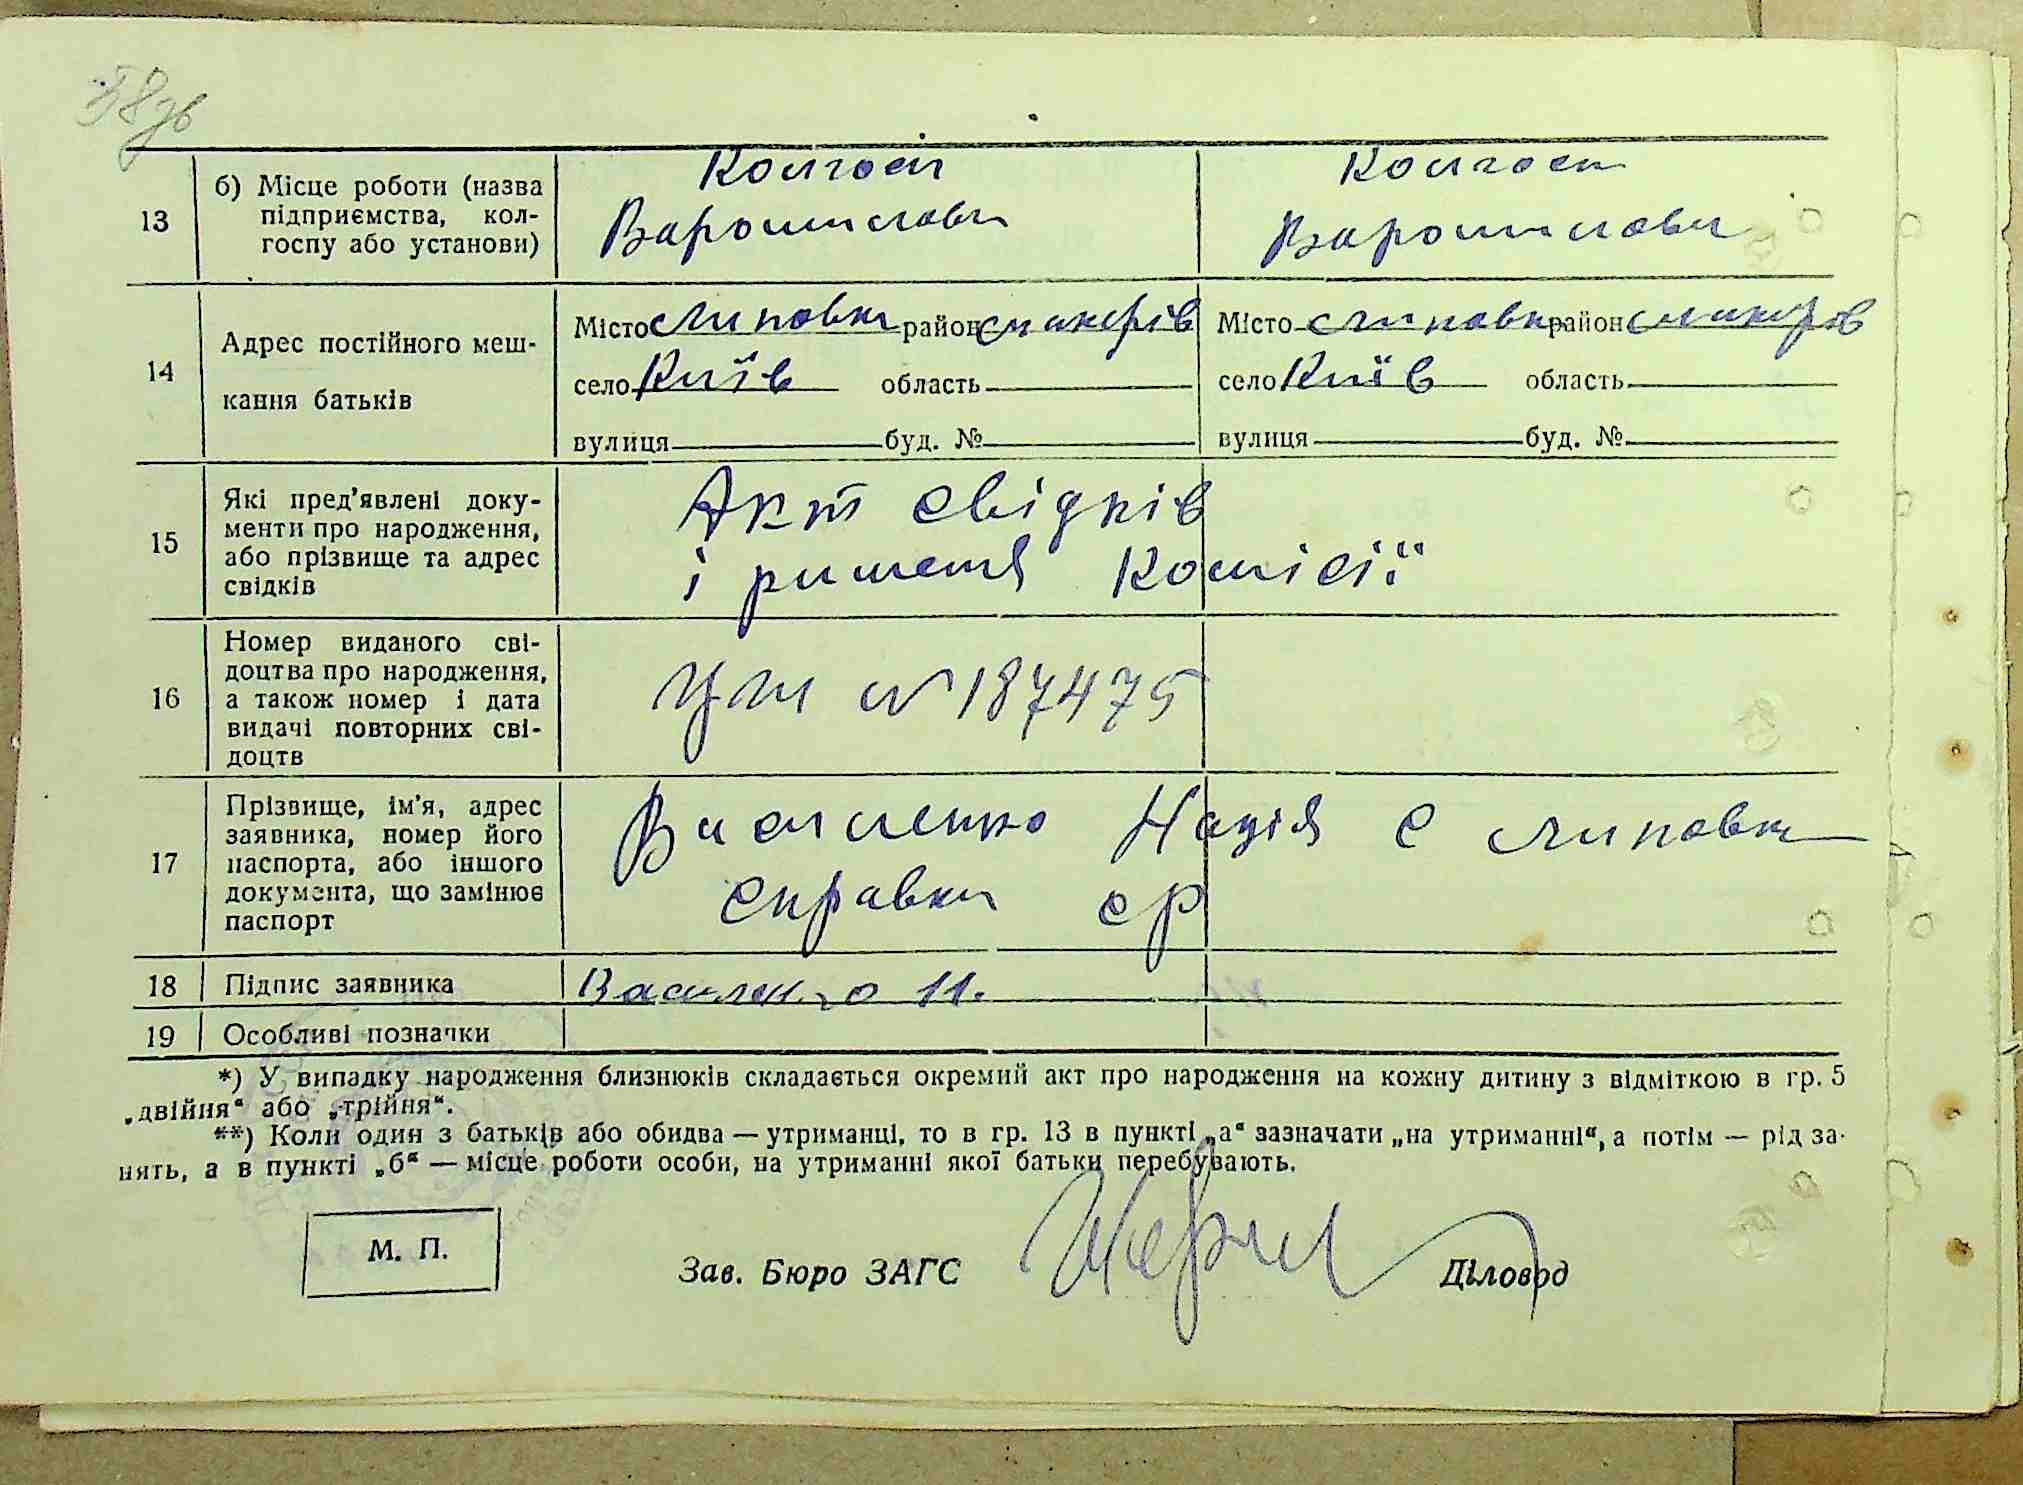 58 зв
13
б) Місце роботи (назва
підприємства, кол-
госпу або установи)
Колгосп
Варошилова
Колгосп
Варошилова
14
Адрес постійного меш-
кання батьків
Місто Липовка район Макерів
село Київ область
вулиця буд. №
Місто Липовка район Макеров
село Київ область
вулиця буд. №
15
Які пред'явлені доку-
менти про народження,
або прізвище та адрес
свідків
Акт свідків
і ришення Комісії
16
Номер виданого сві-
доцтва про народження,
а також номер і дата
видачі повторних сві-
доцтв
№ 187475
17
Прізвище, ім'я, адрес
заявника, номер його
паспорта, або іншого
документа, що замінює
паспорт
Василенко Надія с Липовка
справка ср
18
Підпис заявника
Василенко Н.
19
Особливі позначки
*) У випадку народження близнюків складається окремий акт про народження на кожну дитину з відміткою в гр. 5
„двійня“ або „трійня“.
**) Коли один з батьків або обидва — утриманці, то в гр. 13 в пункті „а“ зазначати „на утриманні“, а потім — рід за-
нять, а в пункті „б“ — місце роботи особи, на утриманні якої батьки перебувають.
М. П.
Зав. Бюро ЗАГС
Діловод